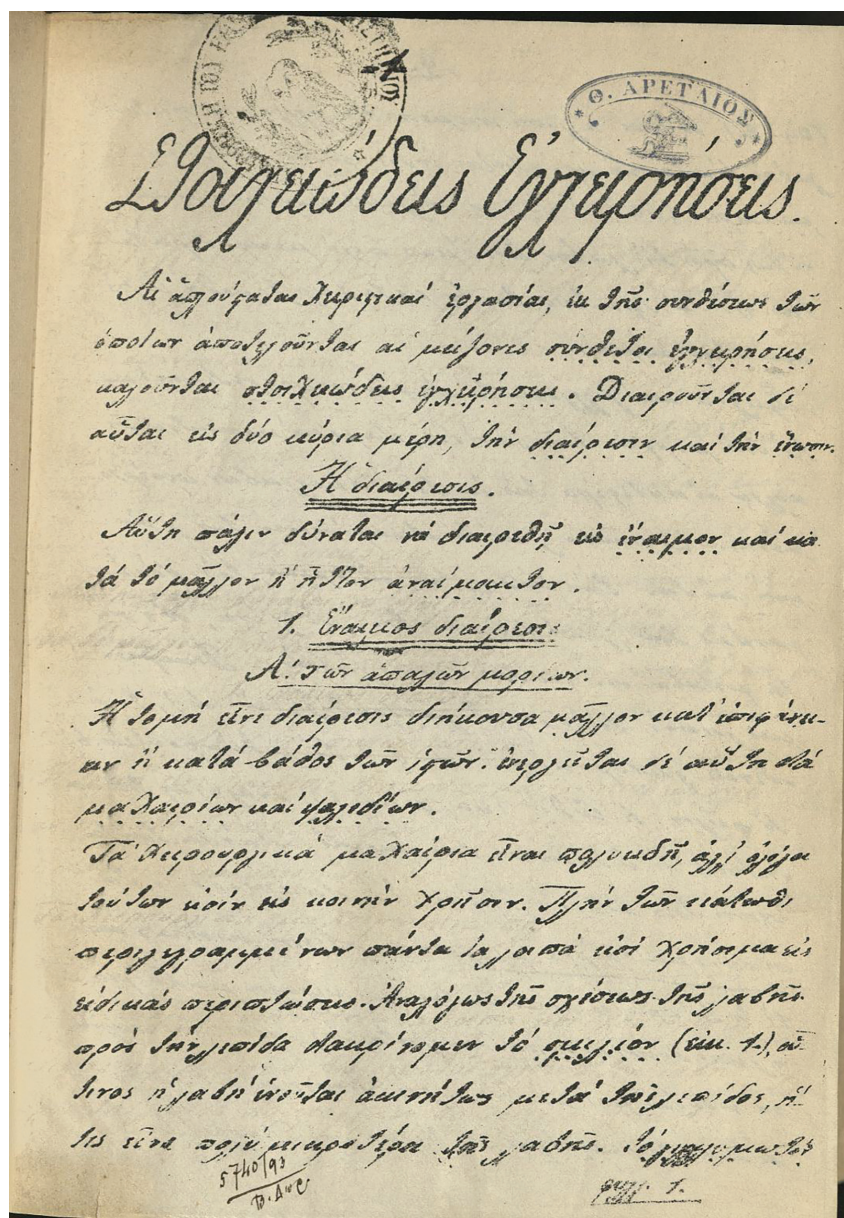 Θ. ΑΡΕΤΑΙΟΣ
Στοιχειώδεις Ἐγχειρήσεις.
Αἱ ἁπλούσταται χειρητικαί ἐργασίαι, ἐκ τῆς συνθέσεως τῶν
ὁποίων ἀποτελοῦνται αἱ μείζονες σύνθετοι ἐγχειρήσεις,
καλοῦνται στοιχειώδεις ἐγχειρήσεις. Διαιροῦνται δέ
αὗται εἰς δύο κύρια μέρη, τήν διαίρεσιν καί τήν ἕνωσιν.
Ἡ διαίρεσις.
Αὕτη πάλιν δύναται νά διαιρεθῇ εἰς ἔναιμον καί κα
τά τό μᾶλλον ἤ ἧττον ἀναίμακτον.
1. Ἔναιμος διαίρεσις
Α΄. τῶν ἁπαλῶν μορίων.
Ἡ τομή εἶνε διαίρεσις διήκουσα μᾶλλον κατ' ἐπιφάνει-
αν ἤ κατά βάθος τῶν ἱστῶν. ἐνεργεῖται δέ αὕτη διά
μαχαιρίων καί ψαλιδίων.
Τά χειρουργικά μαχαίρια εἶναι πολυειδῆ, ἀλλ' ὀλίγα
τούτων εἰσίν εἰς κοινήν χρῆσιν. Πλήν τῶν κάτωθι
περιγεγραμμένων πάντα τα λοιπά εἰσί χρήσιμα εἰς
εἰδικάς περιστάσεις. Ἀναλόγως τῆς σχέσεως τῆς λαβῆς
πρός τήν λεπίδα διακρίνομεν τό σμιλίον (εἰκ. 1.), οὗ
τινος ἡ λαβή ἑνοῦται ἀκινήτως μετά τῆς λεπίδος, ἥ
τις εἶνε πολύ μικροτέρα τῆς λαβῆς. τό
φυλλ. 1.
5740/93